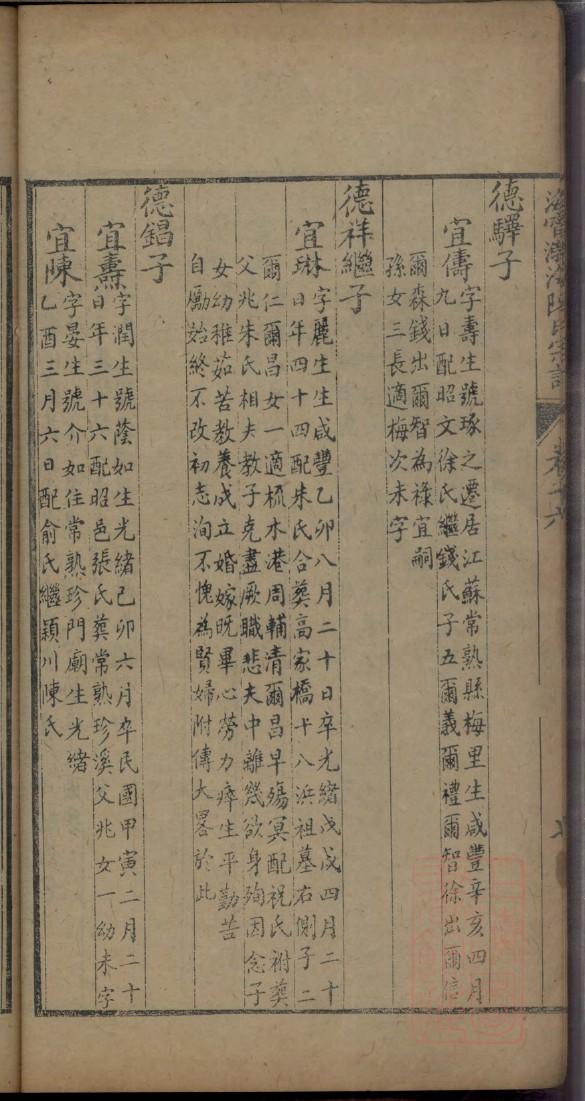 德驛子
宜儔字壽生號琢之遷居江蘇常熟縣梅里生咸豐辛亥四月
九日配昭文徐氏繼錢氏子五爾義爾禮爾智徐出爾信
爾森錢出爾智為祿宜嗣
孫女三長適梅次未字
德祥繼子
宜琳字麗生生咸豐乙卯八月二十日卒光緒戊戌四月二十
日年四十四配朱氏合葬高家橋十八浜祖墓右側子二
爾仁爾昌女一適梳木港周輔清爾昌早殤冥配祝氏祔葬
父兆朱氏相夫教子克盡厥職悲夫中離幾欲身殉因念子
女幼稚茹苦教養成立婚嫁旣畢心勞力瘁生平勤苦
自勵始終不改初志洵不愧為賢婦附傳大畧於此
德錩子
宜燾字潤生號蔭如生光緒己卯六月卒民國甲寅二月二十
日年三十六配昭邑張氏葬常熟珍溪父兆女一幼未字
宜陳字晏生號介如住常熟珍門廟生光緒
乙酉三月六日配俞氏繼潁川陳氏